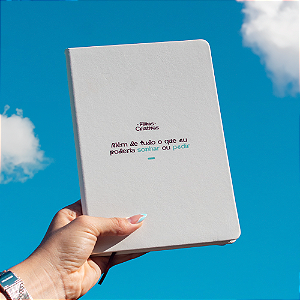 Folhas
Criativas
Além de tudo o que eu
poderia sonhar ou pedir